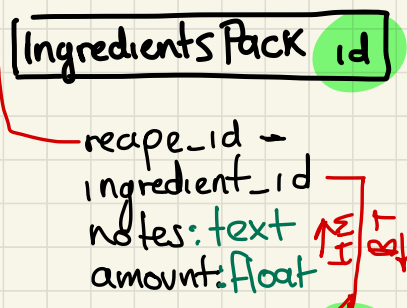 IngredientsPack id
recipe_id -
ingredient_id
notes: text
amount: float
HM
BT